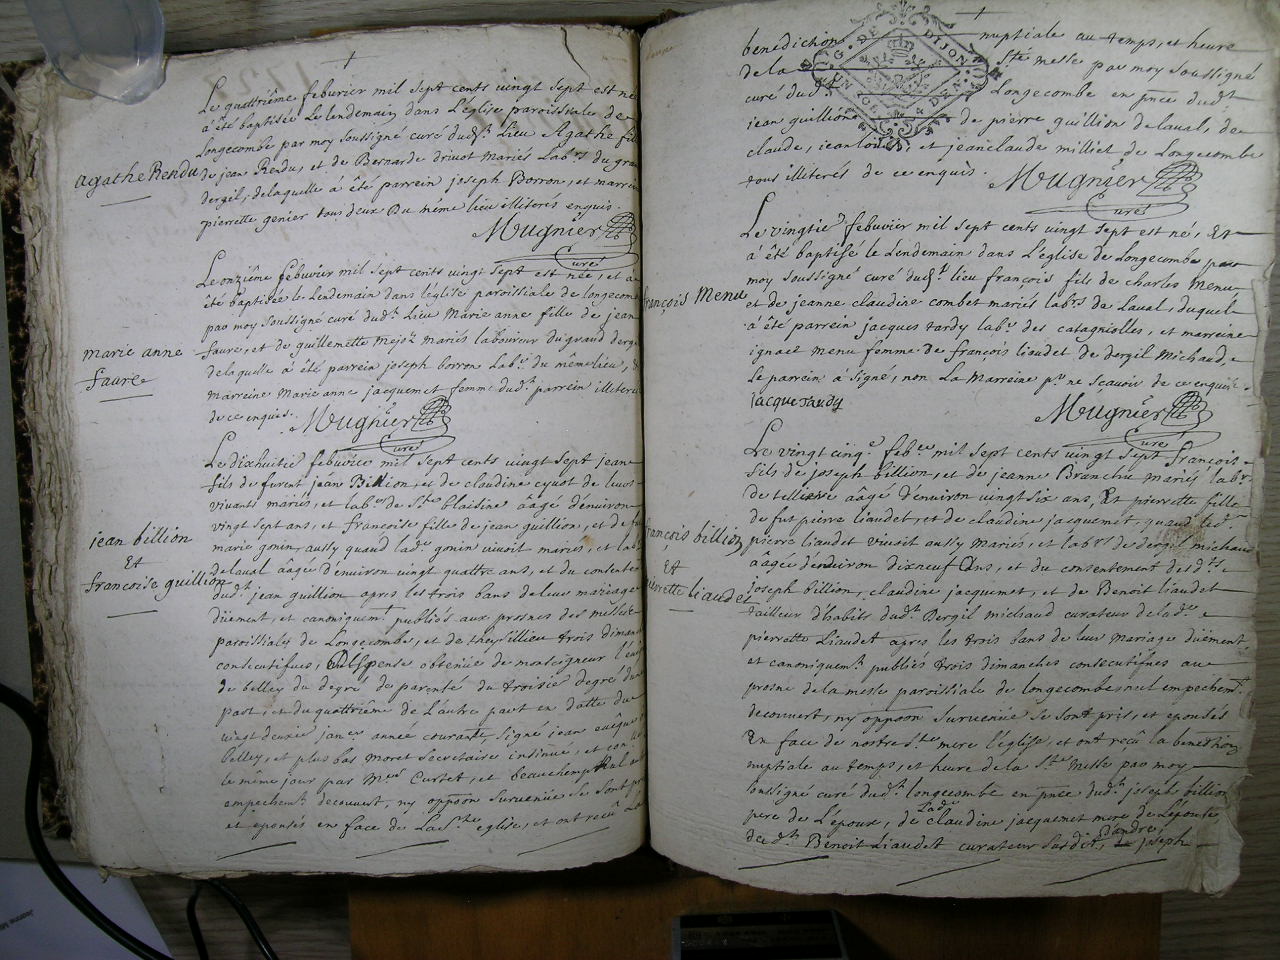 Le quattriême febuvrier mil sept cents vingt sept est né
à été baptisée Le lendemain dans L'église paroissialle de
Longecombe par moy soussigné curé dudt. Lieu Agathe fi
agathe Rendu
de jean Rendu, et de Bernarde drivot mariés Labrs du gra
dergil; de laquelle à été parrein joseph Borron, et marrei
pierrette genier tous deux Du même lieu illiteres enquis.
Mugnier
Curé
Le onziême febuvrier mil sept cents vingt sept est née, et a
été baptisée le Lendemain dans l'église paroissiale de longecom
par moy soussigné curé dudt. Lieu Marie anne fille de jean
marie anne
faure
faure, et de guillemette mariés laboureur du grand derg
de laquelle à été parrein joseph borron Labr. du même lieu,
marreine Marie anne jacquemet femme dudt. parrein illiteré
de ce enquis.
Mugnier
Curé
Le dixhuitiê febuvier mil sept cents vingt sept jean
fils de furent jean Billion, et de claudine cyvot de leurs
vivants mariés, et labrs de St. blaisine aâgé d'environ
vingt sept ans, et francoise fille de jean guillion, et de fu
jean billion
Et
francoise guillion
marie gonin, aussy quand lade. gonin vivoit mariés, et lab
de laval aâgée d'environ vingt quattre ans, et du consente
dudt. jean guillion apres les trois bans de leur mariage
düement, et canoniquemt. publiés aux prosnes des messes
paroissiales de Longecombe, et de theysillieu trois diman
consecutifues, Dispense obtenüe de monseigneur l'evê
de belley du degré de parenté du troisiê degré du
part, et du quattriême de L'autre part en datte du
vingt deuxiê janer année courante, signé jean evêque
belley, et plus bas moret secretaire insinüé, et con
le même jour par Mrs Curtet, et beauchemp Nul au
empechemt. decouvert, ny oppoon survenüe se sont pr
et epousés en face de La Ste. eglise, et ont recû La
benediction nuptiale au temps, et heure
de la Ste messe par moy soussigné
curé dudt. Longecombe en pnce dudt
jean guillion de pierre guillion de laval, de
claude, et jeanclaude milliet de Longecombe
tous illiterés de ce enquis.
Mugnier
Curé
Le vingtiê febuvier mil sept cents vingt sept est né, Et
à été baptisé le Lendemain dans L'église de Longecombe par
moy soussigné curé dudt. lieu françois fils de charles menu
françois Menu
et de jeanne claudine combet mariés labrs de Laval, duquel
à été parrein jacques tardy labr des catagniolles, et marreine
ignace menu femme de françois liaudet de dergil michaud,
Le parrein à signé, non La Marreine pr ne scavoir de ce enquise.
jacque tardy
Mugnier
Curé
Le vingt cinqe. feber mil sept cents vingt sept françois
fils de joseph billion, et de jeanne Branchu mariés labrs
de aâgé d'environ vingt six ans, Et pierrette fille
de fut pierre liaudet, et de claudine jacquemet, quand led.
françois billion
Et
pierrette liaudet
pierre liaudet vivoit aussy mariés, et labrs de dergil michaud
aâgée d'environ dixneuf Ans, et du consentement desdts.
joseph billion, claudine jacquemet, et de Benoit liaudet
tailleur d'habits dudt. Dergil michaud curateur de lade.
pierrette Liaudet apres les trois bans de leur Mariage düement
et canoniquemt. publiés trois dimanches consecutifues au
prosne de la messe paroissiale de longecombe nul empechemt.
decouvert, ny oppoon survenüe se sont pris, et epousés
En face de nostre Ste mere l'église, et ont recû la benediction
nuptiale au temps, et heure de la Ste Messe par moy
soussigné curé dudt. longecombe en pnce dudt. joseph billion
pere de L'epoux, de Lade claudine jacquemet mere de L'épouse
dudt. Benoit Liaudet curateur susdit, d'andré joseph